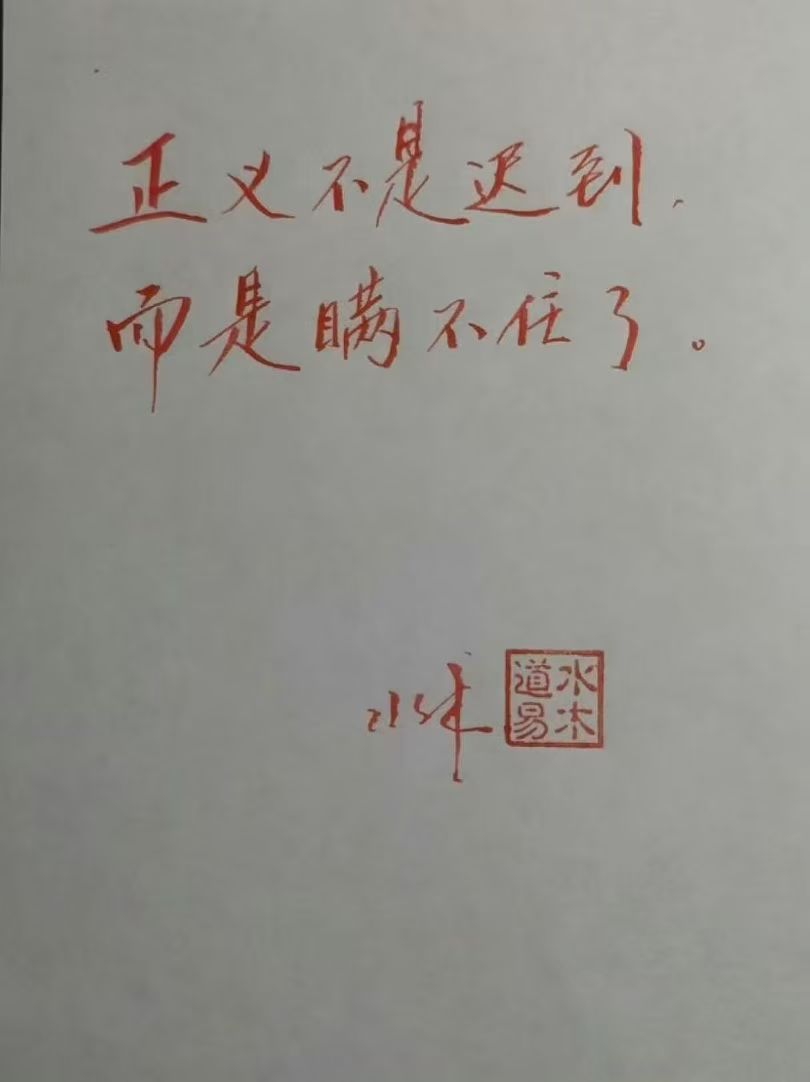 正义不是迟到，
而是瞒不住了。
水木道易